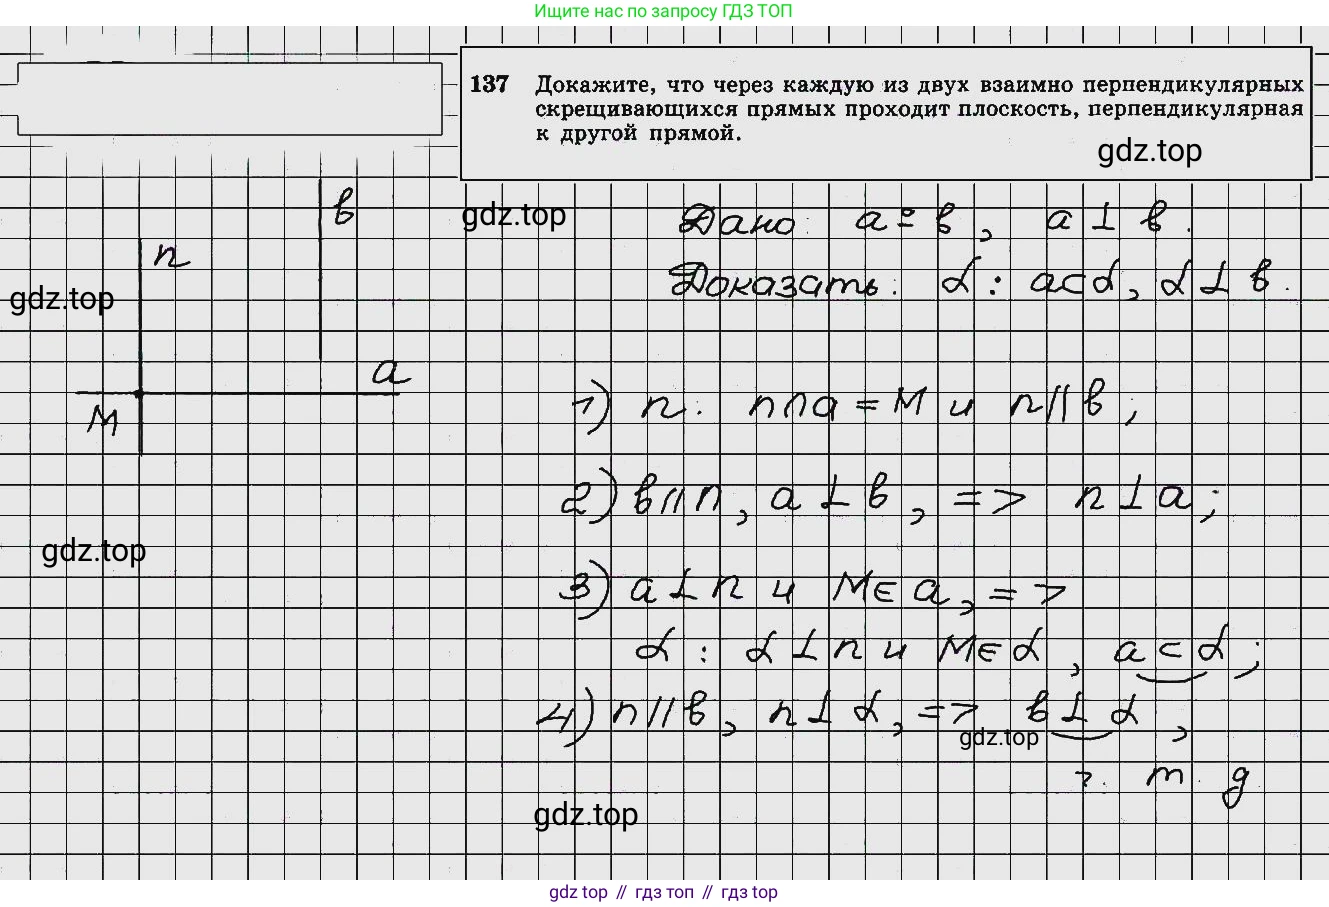 Ищите нас по запросу ГДЗ ТОП
137 Докажите, что через каждую из двух взаимно перпендикулярных
скрещивающихся прямых проходит плоскость, перпендикулярная
к другой прямой.
gdz.top
в
n
gdz.top
gdz.top
a
M
Дано: a ∸ в, a ⊥ в.
Доказать: α: a⊂α, α ⊥ в.
1) n: n∩a = M и n∥в;
2) в∥n, a ⊥ в, => n⊥a;
gdz.top
3) a⊥n и M∈a, =>
α: α⊥n и M∈α, a⊂α;
4) n∥в, n⊥α, => в⊥α,
gdz.top
ч. т. д
gdz.top
gdz top // гдз топ // gdz top